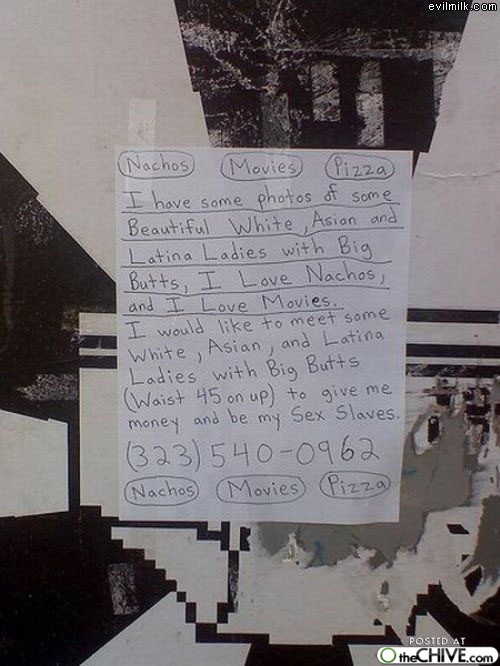 evilmilk.com
Nachos Movies Pizza
I have some photos of some
Beautiful White, Asian and
Latina Ladies with Big
Butts, I Love Nachos,
and I Love Movies.
I would like to meet some
White, Asian, and Latina
Ladies with Big Butts
(Waist 45 on up) to give me
money and be my Sex Slaves.
(323) 540-0962
Nachos Movies Pizza
POSTED AT
theCHIVE.com